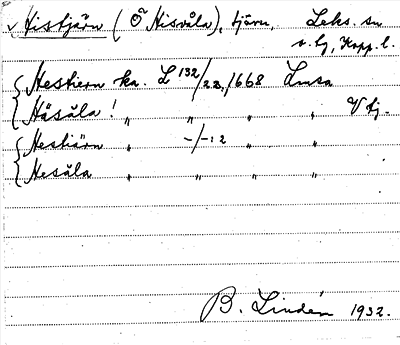 v Histjärn (Ö Hisvåla), tjärn, Leks. sn
v. bg, Kopp. l.
{ Hestiern ka. L 132/22, 1668 Lusa
{ Håsåla! " " " " V bj.
{ Hestiärn " -/-:2 " "
{ Hesåla " " " "
B. Lindén 1932.